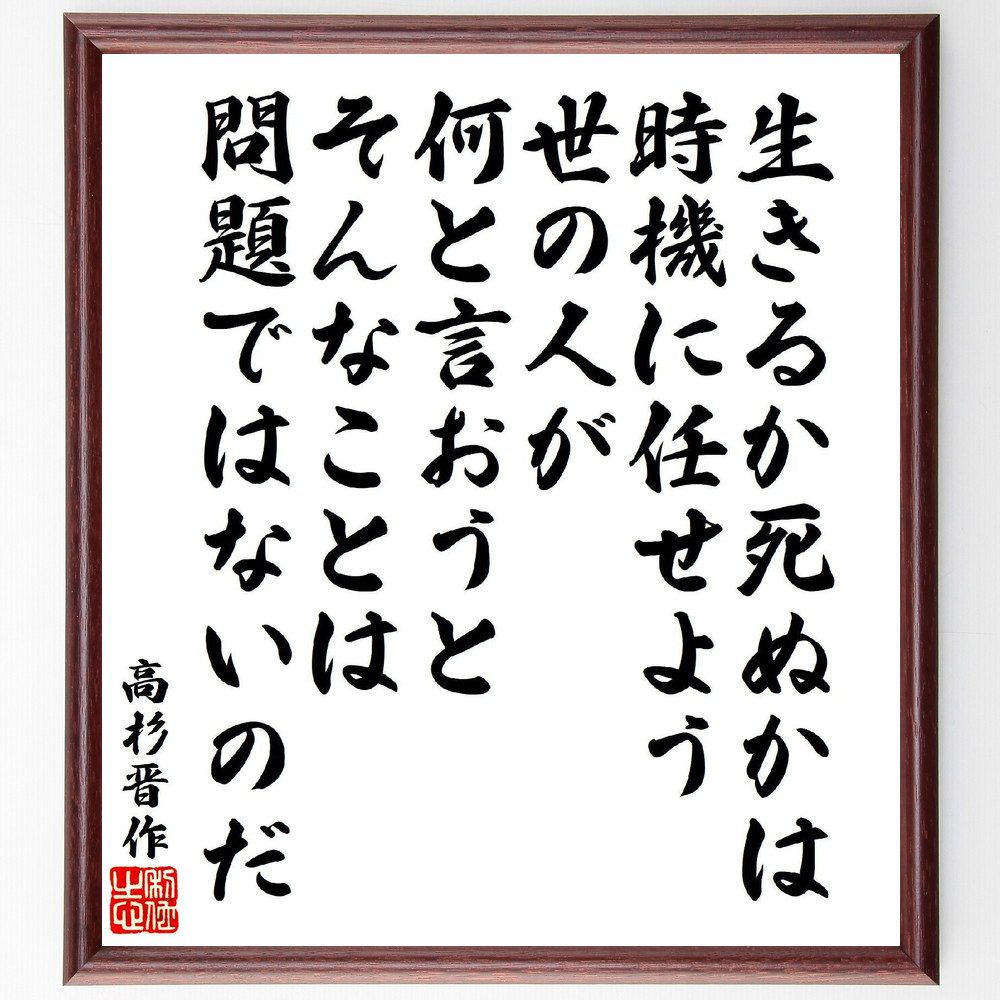 生きるか死ぬかは
時機に任せよう
世の人が
何と言おうと
そんなことは
問題ではないのだ
高杉晋作